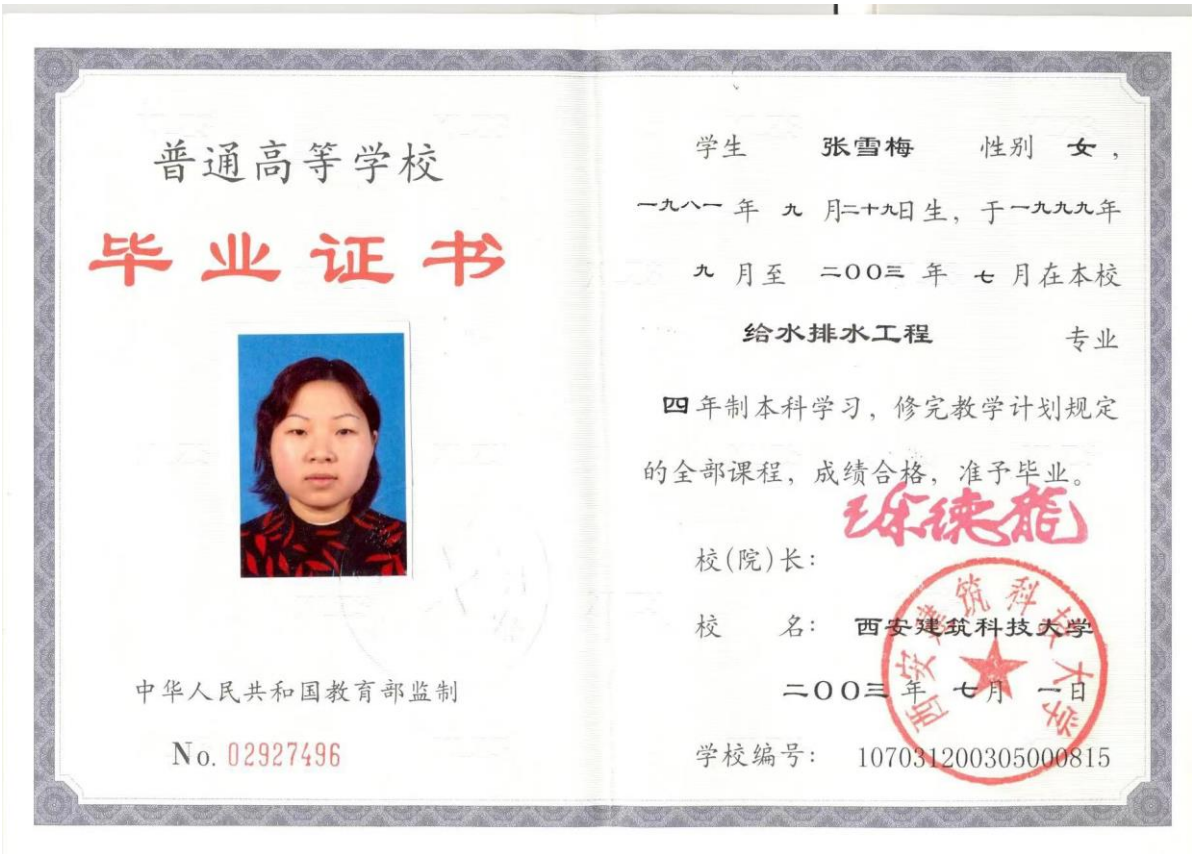 普通高等学校
毕业证书
中华人民共和国教育部监制
No. 02927496
学生 张雪梅 性别 女,
一九八一年 九 月二十九日生, 于一九九九年
九 月至 二〇〇三 年 七 月在本校
给水排水工程 专业
四年制本科学习, 修完教学计划规定
的全部课程, 成绩合格, 准予毕业。
校(院)长: 徐德龙
校 名: 西安建筑科技大学
二〇〇三 年 七月 一日
学校编号: 107031200305000815
西安建筑科技大学